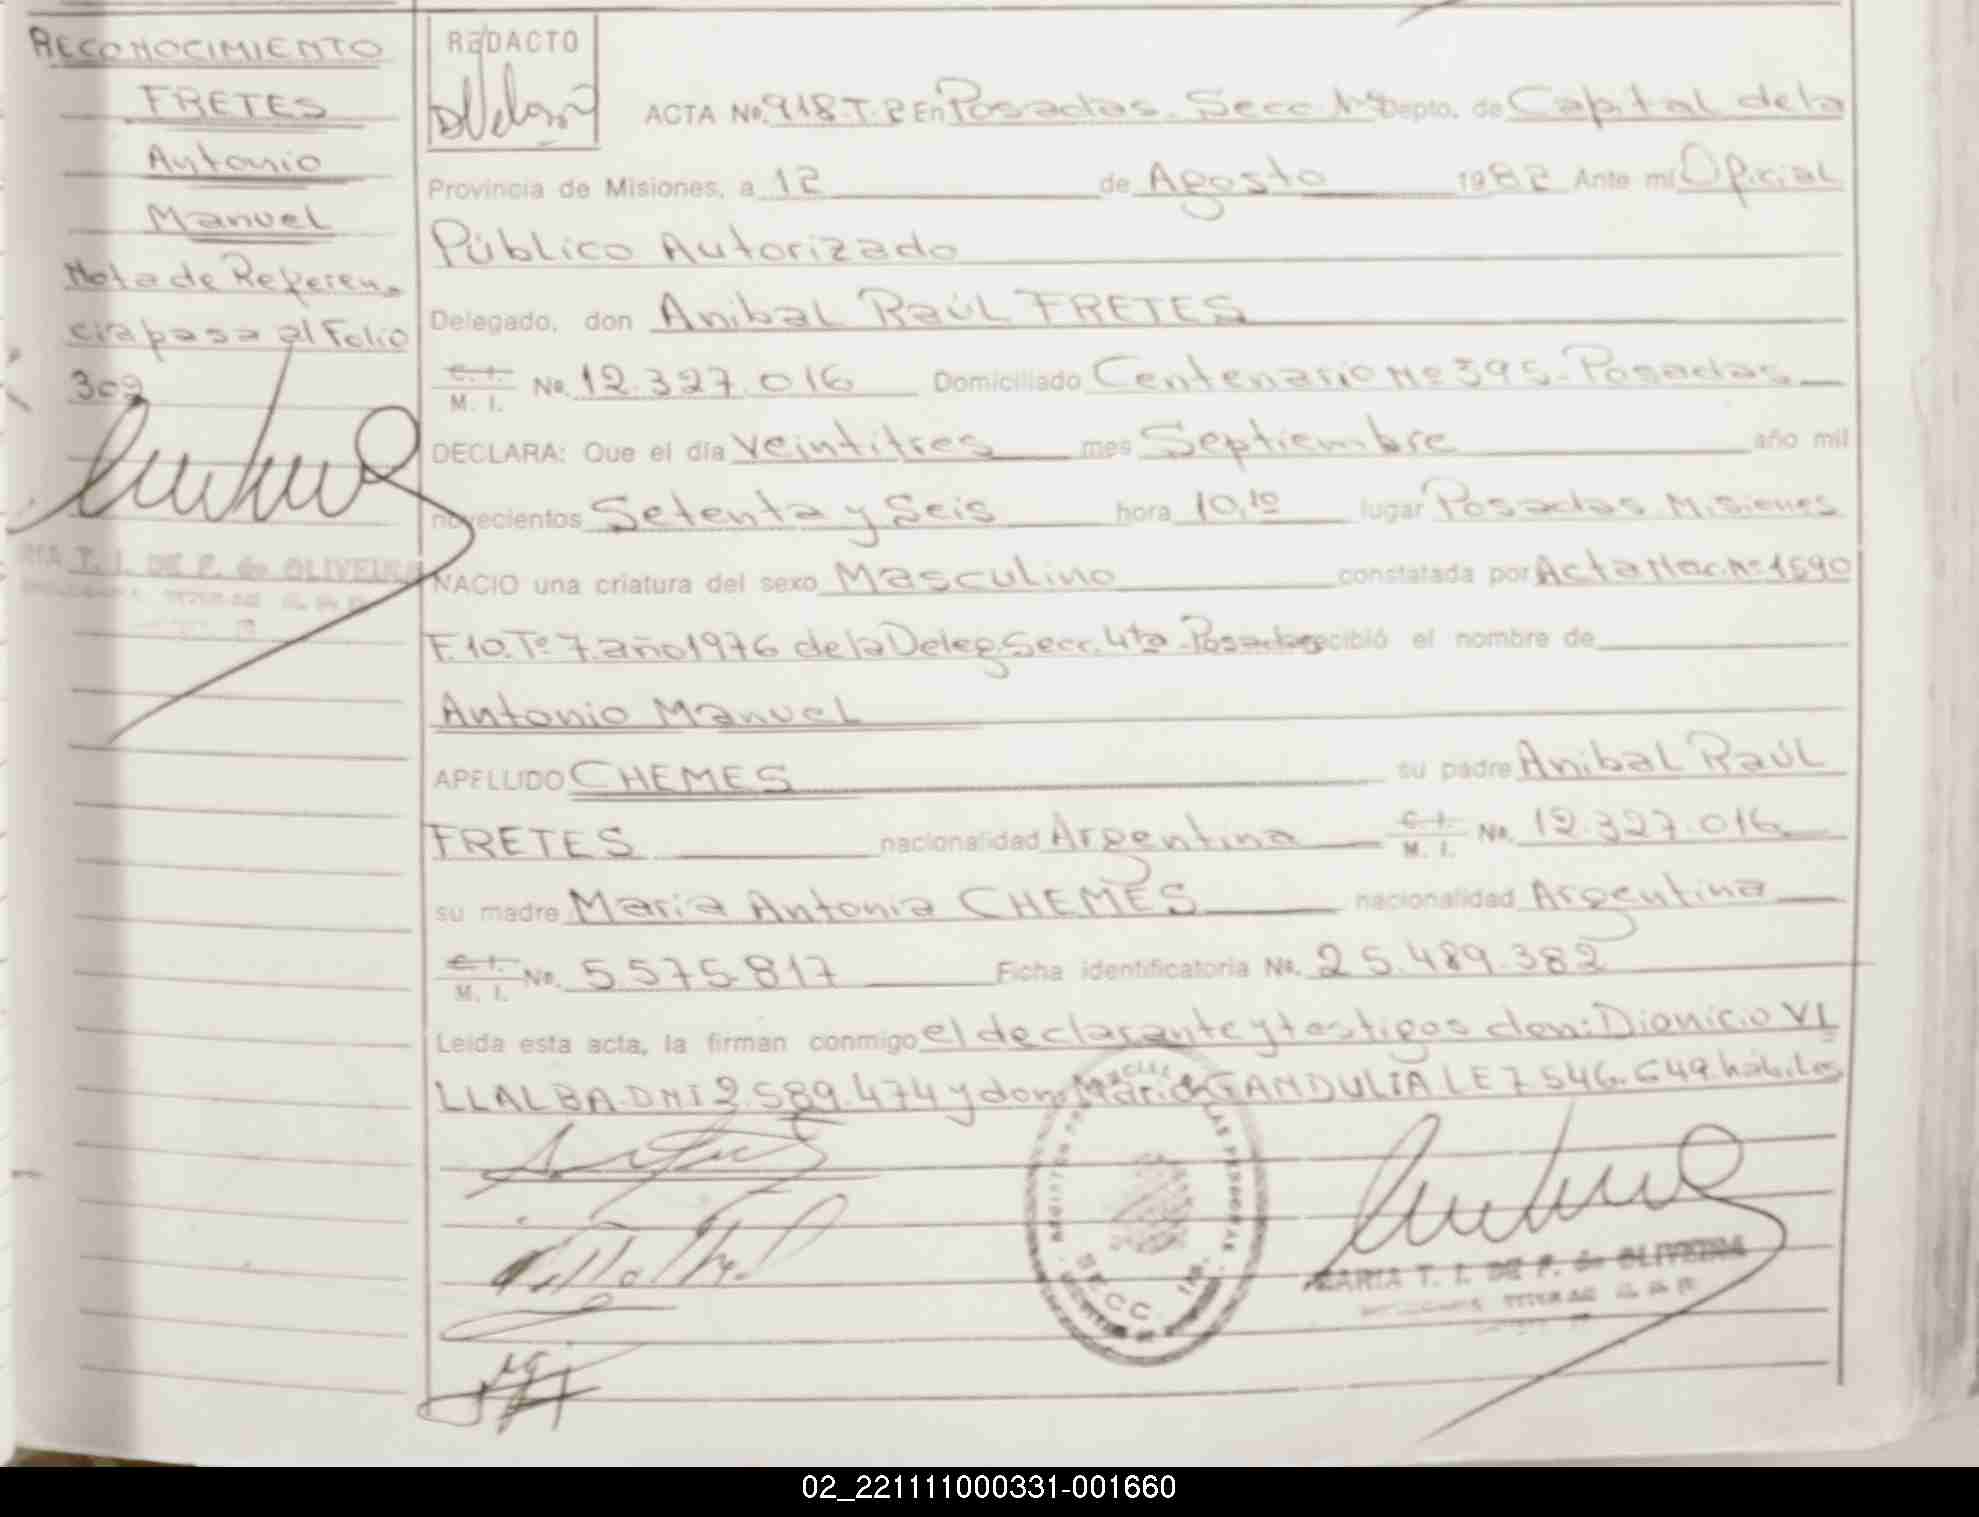 RECONOCIMIENTO
FRETES
Antonio
Manuel
Nota de Referen-
cia pasa al Folio
309
REDACTO
ACTA No. 918-T-2 En Posadas - Secc. Depto. de Capital de la
Provincia de Misiones, a 12 de Agosto 1982 Ante mí Oficial
Público Autorizado
Delegado, don Anibal Raúl FRETES
C. I. M. I. No. 12.327.016 Domiciliado Centenario Nº 395 - Posadas
DECLARA: Que el día veintitres mes Septiembre año mil
novecientos Setenta y Seis hora 10,10 lugar Posadas Misiones
NACIO una criatura del sexo Masculino constatada por Acta Nac. Nº 1590
F. 10. Tº 7. año 1976 de la Deleg. Secc. 4ta - Posadas recibió el nombre de
Antonio Manuel
APELLIDO CHEMES su padre Anibal Raúl
FRETES nacionalidad Argentina C. I. M. I. No. 12.327.016
su madre Maria Antonia CHEMES nacionalidad Argentina
C. I. M. I. No. 5.575.817 Ficha identificatoria No. 25.489.382
Leída esta acta, la firman conmigo el declarante y testigos don: Dionicio VI
LLALBA. DNI 2.589.474 y don: Mario GANDULIA LE 7.546.649. hábiles
SECC. 1ra.
MARIA T. I. DE F. de OLIVEIRA
02_221111000331-001660